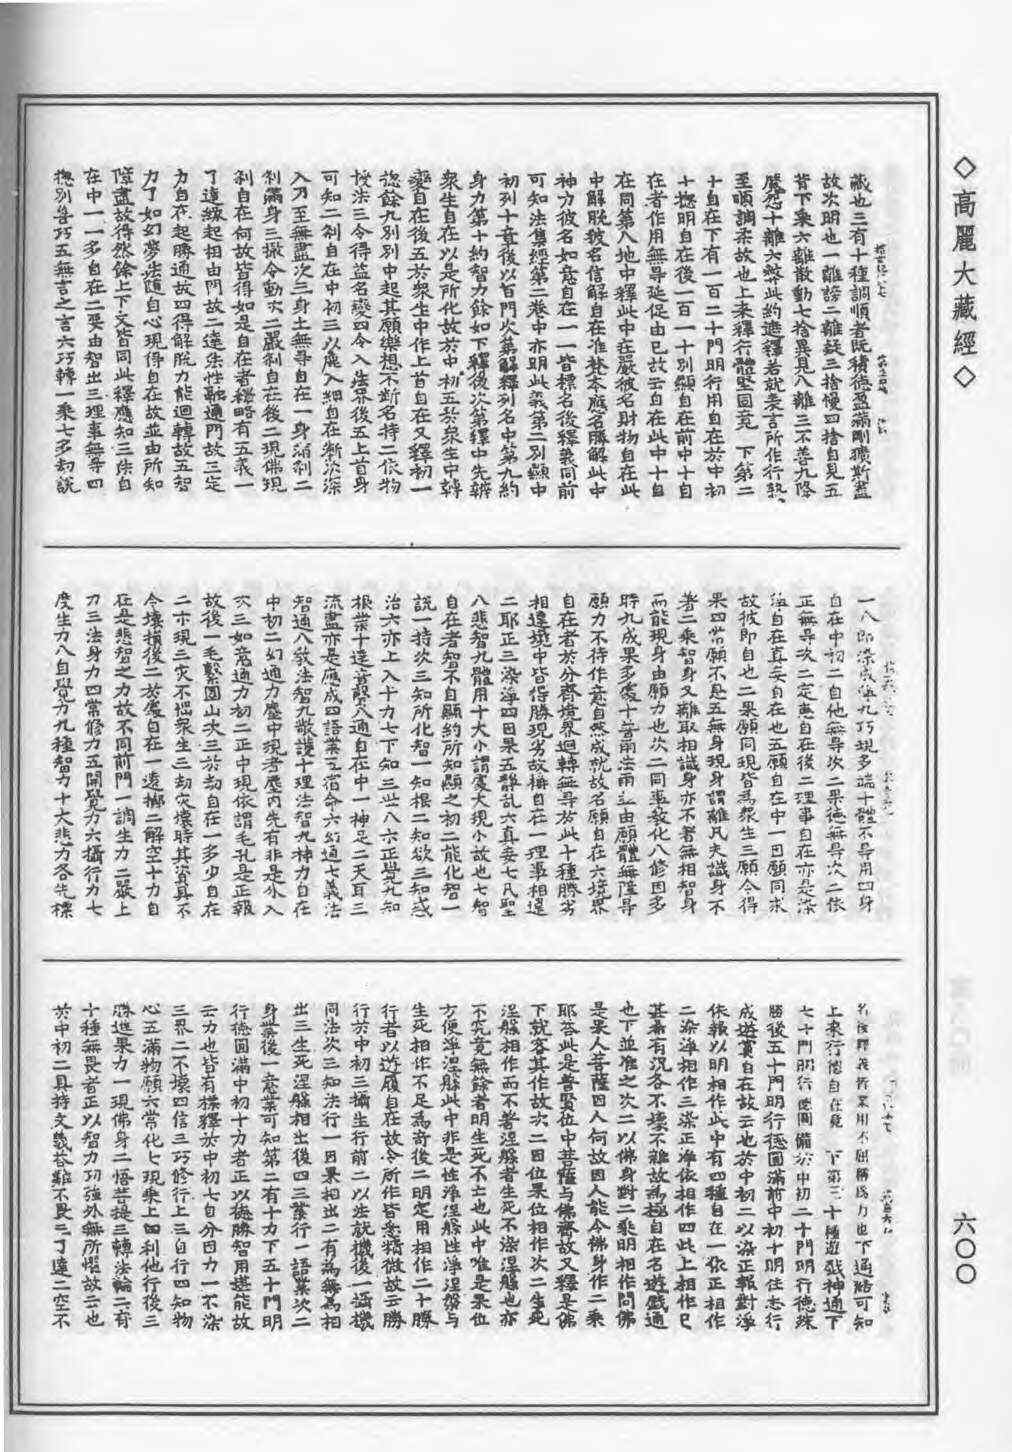 ◇高麗大藏經◇
六〇〇
藏也三有十種調順者既積德盈滿剛獷斯盡
故次明也一離謗二離疑三捨慢四捨自見五
背下乘六離散動七捨異見八離三不善九降
至順調柔故也上來釋行體堅固竟 下第二
十自在下有一百二十門明行用自在於中初
十總明自在後一百一十別顯自在前中十自
在者作用無㝵延促由已故云自在此中十自
在同第八地中釋此中在嚴彼名財物自在此
中解脫彼名信解自在准梵本應名勝解此中
神力彼名如意自在一一皆標名後釋義同前
可知法集經第二卷中亦明此義第二別顯中
初列十章後以百門次第解釋列名中第九約
身力第十約智力餘如下釋後次第釋中先辨
衆生自在以是所化故於中初五於衆生中轉
變自在後五於衆生中作上首自在又釋初一
惣餘九別別中起其願樂想不斷名持二依物
授法三令得益名變四令入法界後五上首身
可知二剎自在中初三以麁入細自在斬次深
入乃至無盡次三身土無㝵自在一身滿剎二
剎滿身三振令動次二嚴剎自在後二現佛現
剎自在何故皆得如是自在者釋略有五義一
了達緣起相由門故二達法性融通門故三定
力自在起勝通故四得解脫力能迴轉故五智
力了如幻夢法隨自心現得自在故並由所知
障盡故得然餘上下文皆同此釋應知三法自
在中一一多自在二要由智出三理事無㝵四
揔別善巧五無言之言六巧轉一乘七多劫說
一八即染成淨九巧現多端十體不㝵用四身
自在中初二自他無㝵次二果德無㝵次二依
正無㝵次二定慧自在後二理事自在亦是染
淨自在真妄自在也五願自在中一因願同求
故彼即自也二果願同現皆爲衆生三願令得
果四常願不息五無身現身謂離凡夫識身不
著二乘智身又離取相識身亦不著無相智身
而能現身由願力也次二同事教化八修因多
時九成果多處十普雨法雨並由願體無障㝵
願力不待作意自然成就故名願自在六境界
自在者於分齊境界迴轉無㝵於此十種勝劣
相違境中皆得勝現劣故稱自在一理事相違
二邪正三染淨四因果五靜乱六真妄七凡聖
八悲智九體用十大小謂處大現小故也七智
自在者智不自顯約所知顯之初二能化智一
說一持次三知所化智一知根二知欲三知惑
治六亦上入十力七下知三世八六正覺九知
根業十達音聲八通自在中一神足二天耳三
流盡亦是應成四語業五宿命六幻通七義法
智通八教法智九敬護十理法智九神力自在
中初二幻通力塵中現者塵內先有非是外入
次三如意通力初二正中現依謂毛孔是正報
故後一毛繫圍山次三於劫自在一多少自在
二亦現三災不惱衆生三劫灾壞時其資具不
令壞損後二於處自在一遠擲二解空十力自
在是悲智之力故不同前門一調生力二嚴土
力三法身力四常修力五開覺力六攝行力七
度生力八自覺力九種智力十大悲力各先標
名後釋義皆業用不屈稱爲力也下通結可知
上來行體自在竟 下第三十種遊戲神通下
七十門明行德圓備於中初二十門明行德殊
勝後五十門明行德圓滿前中初十明任志行
成遊賞自在故云也於中初二以染正報對淨
依報以明相作此中有四種自在一依正相作
二染淨相作三染正淨依相作四此上相作已
甚希有況各不壞不雜故爲極自在名遊戲通
也下並准之次二以佛身對二乘明相作問佛
是果人菩薩因人何故因人能令佛身作二乘
耶荅此是普賢位中菩薩与佛齊故又釋是佛
下就客其作故次二因位果位相作次二生死
涅槃相作而不著涅槃者生死不染涅槃也亦
不究竟無餘者明生死不亡也此中唯是果位
方便淨涅槃此中非是性淨涅槃性淨涅槃与
生死相作不足爲奇後二明定用相作二十勝
行者以遊履自在故令所作皆悉精微故云勝
行於中初三攝生行前二以生就機後一攝機
同法次三知法行一因果相出二有爲無爲相
出三生死涅槃相出後四三業行一語業次二
身業後一意業可知第二有十力下五十門明
行德圓滿中初十力者正以德勝智用堪能故
云力也皆有摽釋於中初七自分因力一不染
三界二不壞四信三巧修行上三自行四知物
心五滿物願六常化七現乘上四利他行後三
勝進果力一現佛身二悟菩提三轉法輪二有
十種無畏者正以智力功強外無所懼故云也
於中初二具持文義荅難不畏三了達二空不